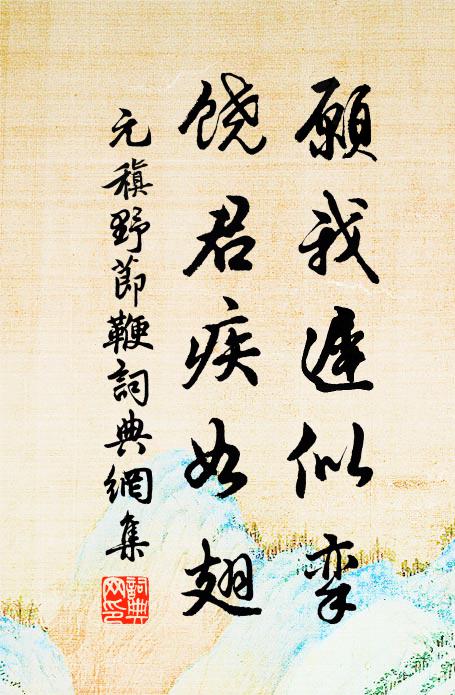 願我遲似挛
饶君疾如翅
元稹野節鞭詞典網集
詞典网印